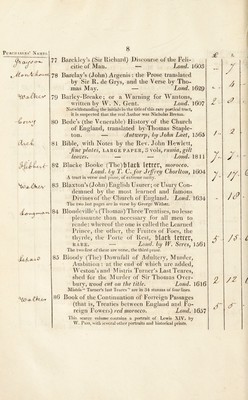 8
PURCHASERS' NAMES
£ s.
77 Barckley's (Sir Richard) Discourse of the Feli-
citie of Man. — Lond. 1603
7
78 Barclay's (John) Argenis: the Prose translated
by Sir R. de Grys, and the Verse by Tho-
mas May. — Lond. 1629
4
Walker
79 Barley-Breake; or a Warning for Wantons,
written by W. N. Gent. Lond. 1607
Notwithstanding the initials to the title of this rare poetical tract,
it is suspected that the real Author was Nicholas Breton.
2 0
80 Bede's (the Venerable) History of the Church
of England, translated by Thomas Staple-
ton. Antwerp, by John Laet, 1565
1 2
81 Bible, with Notes by the Rev. John Hewlett,
fine plates, LARGE PAPER, 3 vols, russia, gilt
leaves. Lond. 1811
7 2
Hibbert
82 Blacke Booke (The) black letter, morocco.
Lond. by T. C. for Jeffery Chorlton, 1604
A tract in verse and prose, of extreme rarity.
7 17
Walker
83 Blaxton's (John) English Usurer; or Usury Con-
demned by the most learned and famous
Divines of the Church of England. Lond. 1634
The two last pages are in verse by George Wither.
1 10
Longman
84 Blundeville's (Thomas) Three Treatises, no lesse
pleasaunte than necessary for all men to
reade; whereof the one is called the Learned
Prince, the other, the Fruites of Foes, the
thyrde, the Forte of Rest, black letter,
RARE. Lond. by W. Seres, 1561
The two first of these are verse, the third prose.
5 15
85 Bloody (The) Downfall of Adultery, Murder,
Ambition: at the end of which are added,
Weston's and Mistris Turner's Last Teares,
shed for the Murder of Sir Thomas Over-
bury, wood cut on the title. Lond. 1616
Mistris “Turner's last Teares” are in 34 stanzas of four lines.
2 12
Walker
86 Book of the Continuation of Forreign Passages
(that is, Treaties between England and Fo-
reign Powers) red morocco. Lond. 1657
This scarce volume contains a portrait of Lewis XIV. by
W. Fare, with several other portraits and historical prints.
5 5